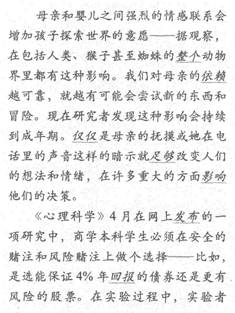 母亲和婴儿之间强烈的情感联系会
增加孩子探索世界的意愿——据观察，
在包括人类、猴子甚至蜘蛛的整个动物
界里都有这种影响。我们对母亲的依赖
越可靠，就越有可能会尝试新的东西和
冒险。现在研究者发现这种影响会持续
到成年期。仅仅是母亲的抚摸或她在电
话里的声音这样的暗示就足够改变人们
的想法和情绪，在许多重大的方面影响
他们的决策。
《心理科学》4月在网上发布的一
项研究中，商学本科学生必须在安全的
赌注和风险赌注上做个选择——比如，
是选能保证4%年回报的债券还是更有
风险的股票。在实验过程中，实验者